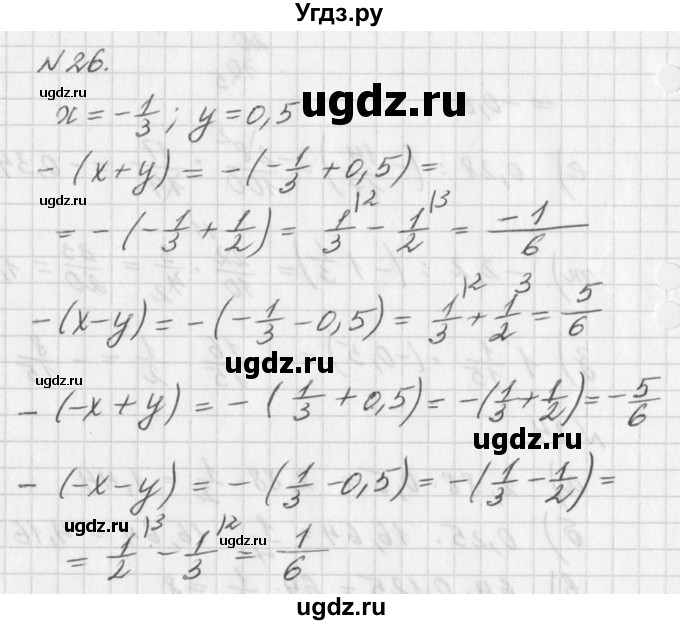 Угдз.ру
№26.
ugdz.ru
ugdz.ru
x = -1/3 ; y = 0,5
- (x+y) = -(-1/3 + 0,5) =
ugdz.ru
= - (-1/3 + 1/2) = 1/3 |2 - 1/2 |3 = -1/6
- (x-y) = -(-1/3 - 0,5) = 1/3 |2 + 1/2 3 = 5/6
ugdz.ru
ugdz.ru
- (-x+y) = - (1/3 + 0,5) = -(1/3 + 1/2) = -5/6
ugdz.ru
- (-x-y) = -(1/3 - 0,5) = -(1/3 - 1/2) =
ugdz.ru
ugdz.ru
= 1/2 |3 - 1/3 |2 = 1/6
ugdz.ru